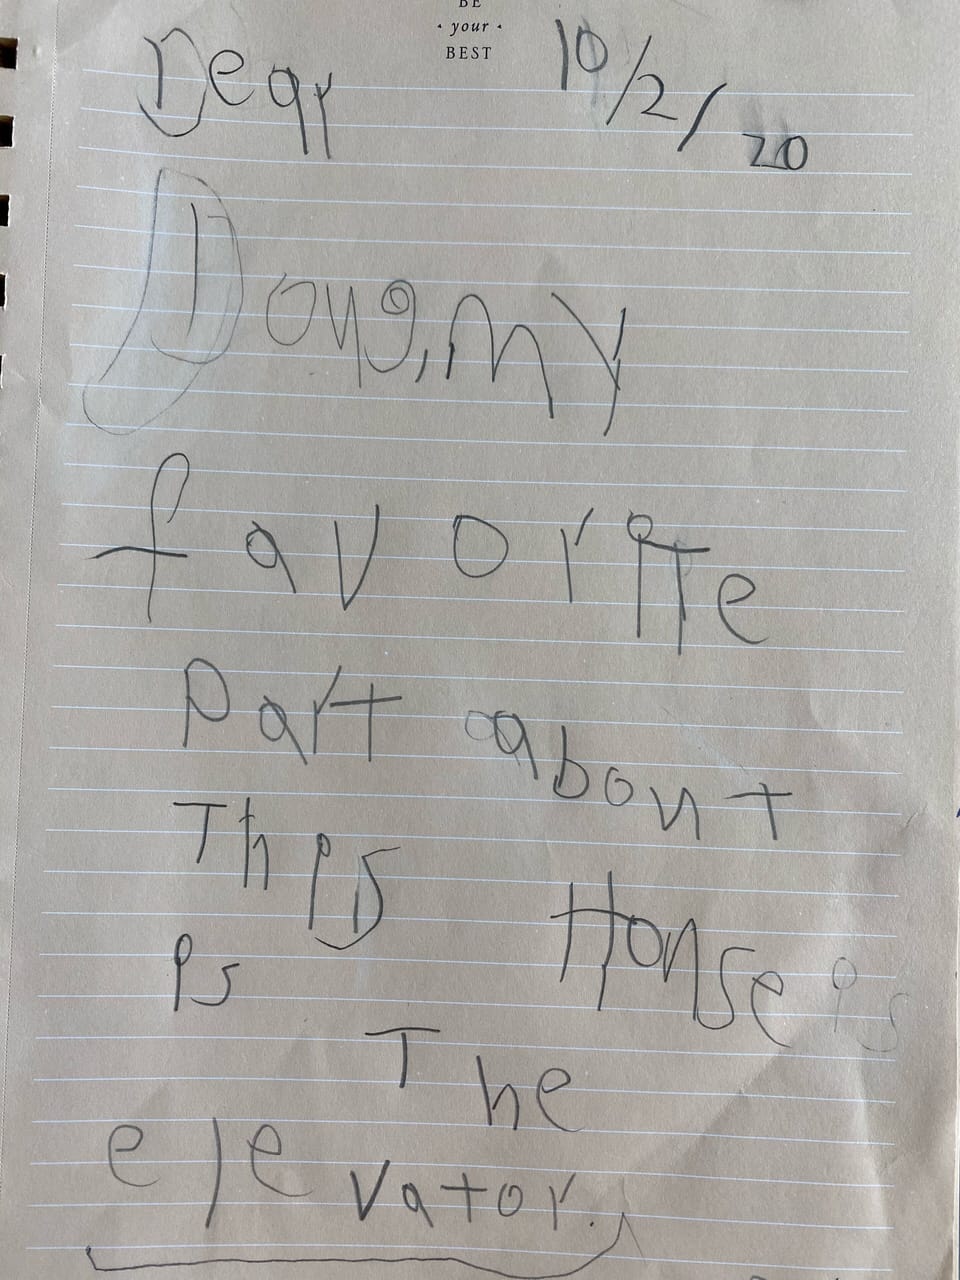 BE
· your ·
BEST
Dear 10/2/20
Doug, my
favorite
Part about
This House is
is
The
elevator.